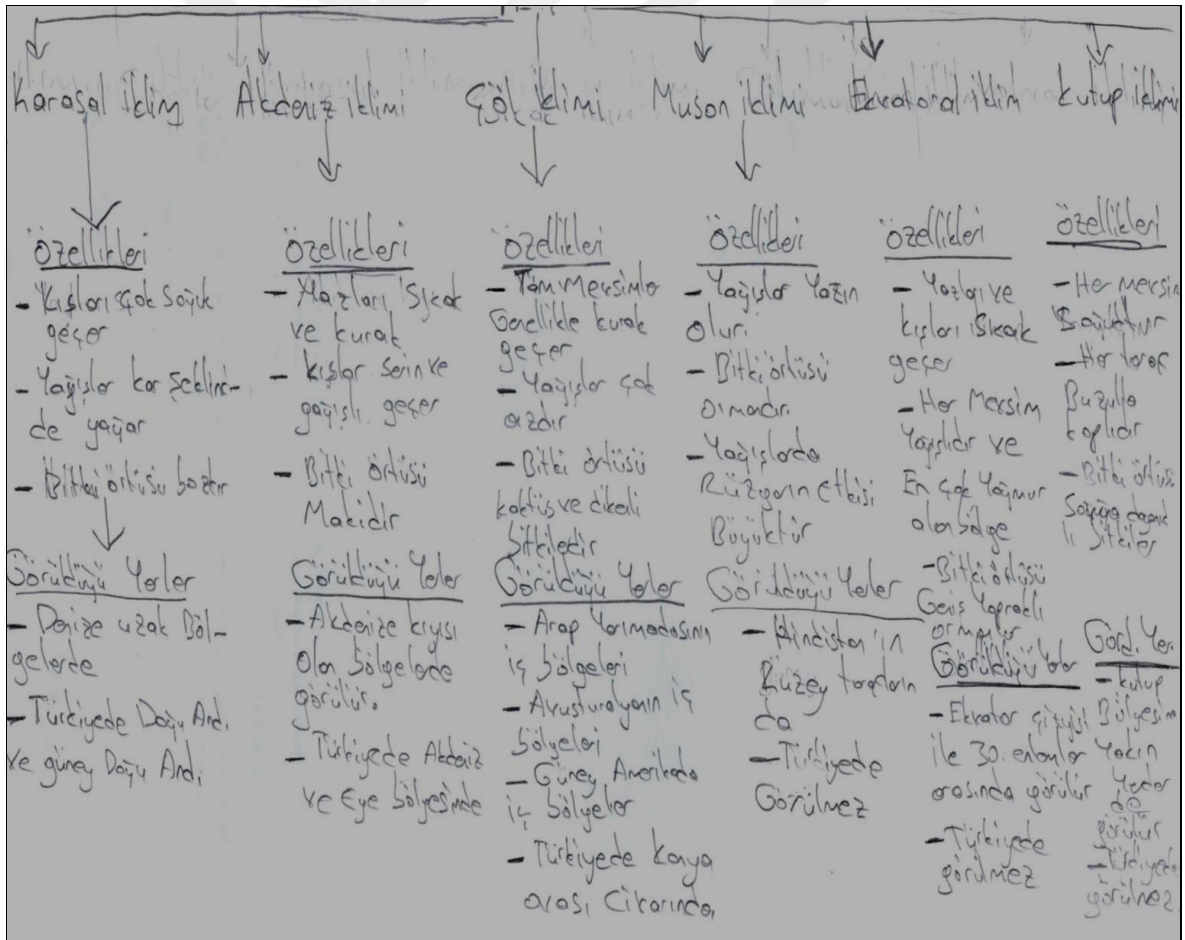 Karasal İklim
Akdeniz iklimi
Çöl iklimi
Muson iklimi
Ekvatoral iklim
Kutup iklimi
Özellikleri
- Kışları çok soğuk
geçer
- Yağışlar kar şeklin-
de yağar
- Bitki örtüsü bozkır
Görüldüğü Yerler
- Denize uzak Böl-
gelerde
- Türkiyede Doğu And.
ve güney Doğu And.
Özellikleri
- Yazları Sıcak
ve kurak
- kışlar Serin ve
yağışlı geçer
- Bitki örtüsü
Makidir
Görüldüğü Yerler
- Akdenize kıyısı
olan bölgelerde
görülür.
- Türkiyede Akdeniz
ve Ege bölgesinde
Özellikleri
- Tüm Mevsimler
Genellikle kurak
geçer
- Yağışlar çok
azdır
- Bitki örtüsü
kaktüs ve dikenli
bitkiledir
Görüldüğü Yerler
- Arap Yarımadasının
iç bölgeleri
- Avusturalyanın iç
bölgeleri
- Güney Amerikada
iç bölgeler
- Türkiyede Konya
ovası Civarında
Özellikleri
- Yağışlar Yazın
olur.
- Bitki örtüsü
Ormandır.
- Yağışlarda
Rüzgarın etkisi
Büyüktür
Görüldüğü Yerler
- Hindistan'ın
Kuzey
da
- Türkiyede
Görülmez
Özellikleri
- Yazları ve
kışları Sıcak
geçer
- Her Mevsim
Yağışlıdır ve
En çok Yağmur
alan bölge
- Bitki örtüsü
Geniş Yapraklı
ormanlar
Görüldüğü Yerler
- Ekvator çizgisi
ile 30. enlemler
arasında görülür
- Türkiyede
görülmez
Özellikleri
- Her mevsim
Soğuktur
- Her taraf
Buzulla
kaplıdır
- Bitki örtüsü
Soğuğa dayanık
lı bitkiler
Görd. Yer.
- kutup
Bölgesine
Yakın
Yerler
de
görülür
- Türkiyede
görülmez